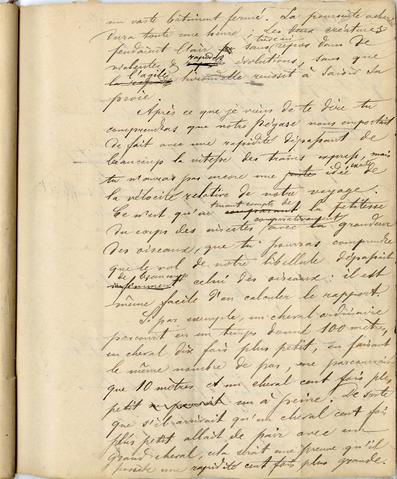 un vaste bâtiment fermé. La poursuite achar
dura toute une heure, les deux créatures
fendaient l'air sans repos dans de
violentes & rapides évolutions, sans que
l'agile hirondelle réussit à saisir sa
proie.
Après ce que je viens de te dire tu
comprendras que notre pégase nous emportait
de fait avec une rapidité dépassant de
beaucoup la vitesse des trains express, mais
tu n'auras pas encore une idée exacte de
la vélocité relative de notre voyage.
Ce n'est qu'en tenant compte de la petitesse
du corps des insectes comparativement avec la grandeur
des oiseaux, que tu pourras comprendre
que le vol de notre libellule dépassait
de beaucoup celui des oiseaux: il est
même facile d'en calculer le rapport.
Si par exemple, un cheval ordinaire
parcourt en un temps donné 100 mètres,
un cheval dix fois plus petit, en faisant
le même nombre de pas, ne parcourait
que 10 mètres et un cheval cent fois plus
petit un à peine. De sorte
que s'il arrivait qu'un cheval cent fois
plus petit allait de pair avec un
grand cheval, cela serait une preuve qu'il
possède une rapidité cent fois plus grande.